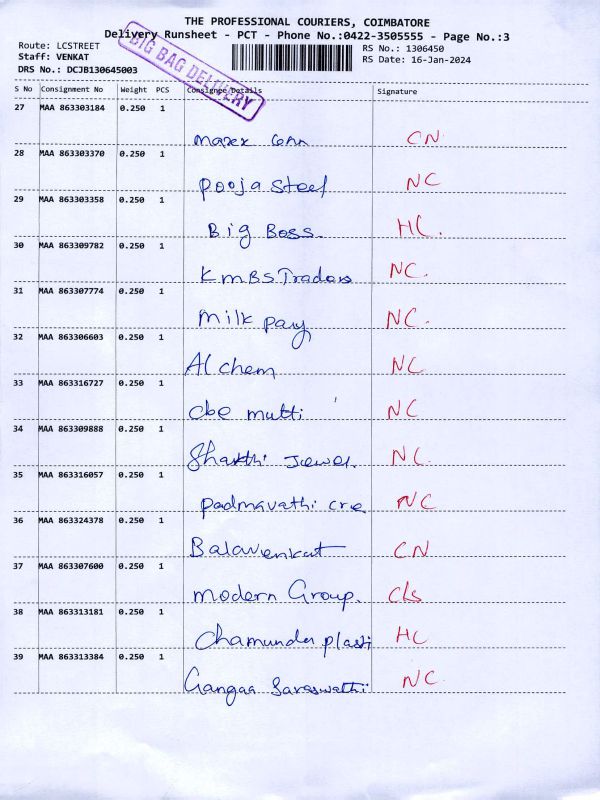 THE PROFESSIONAL COURIERS, COIMBATORE
Delivery Runsheet - PCT - Phone No.:0422-3505555 - Page No.:3
Route: LCSTREET
RS No.: 1306450
Staff: VENKAT
RS Date: 16-Jan-2024
DRS No.: DCJB130645003
BIG BAG DELIVERY
S No Consignment No Weight PCS Consignee Details Signature
27 MAA 863303184 0.250 1
CN
28 MAA 863303370 0.250 1
Pooja Steel NC
29 MAA 863303358 0.250 1
Big Boss HC.
30 MAA 863309782 0.250 1
KMBS Traders NC.
31 MAA 863307774 0.250 1
Milk pary NC.
32 MAA 863306603 0.250 1
Al chem NC
33 MAA 863316727 0.250 1
cbe mutti NC
34 MAA 863309888 0.250 1
Shakthi Jewel. NC.
35 MAA 863316057 0.250 1
Padmavathi cre NC
36 MAA 863324378 0.250 1
Balavenkat CN
37 MAA 863307600 0.250 1
Modern Group. Cls
38 MAA 863313181 0.250 1
Chamunda plasti HC
39 MAA 863313384 0.250 1
Gangaa Saraswathi NC